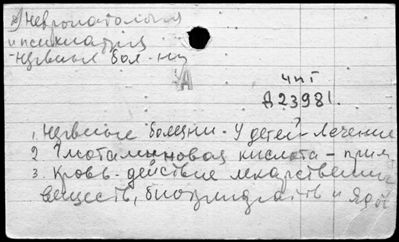 Невропатология
и психиатрия
-нервные бол-ни
А
чит
Д23981.
1. нервные болезни - У детей - лечение
2 Глютаминовая кислота - прим.
3. Кровь - действие лекарственных
веществ, биопрепаратов и ядов